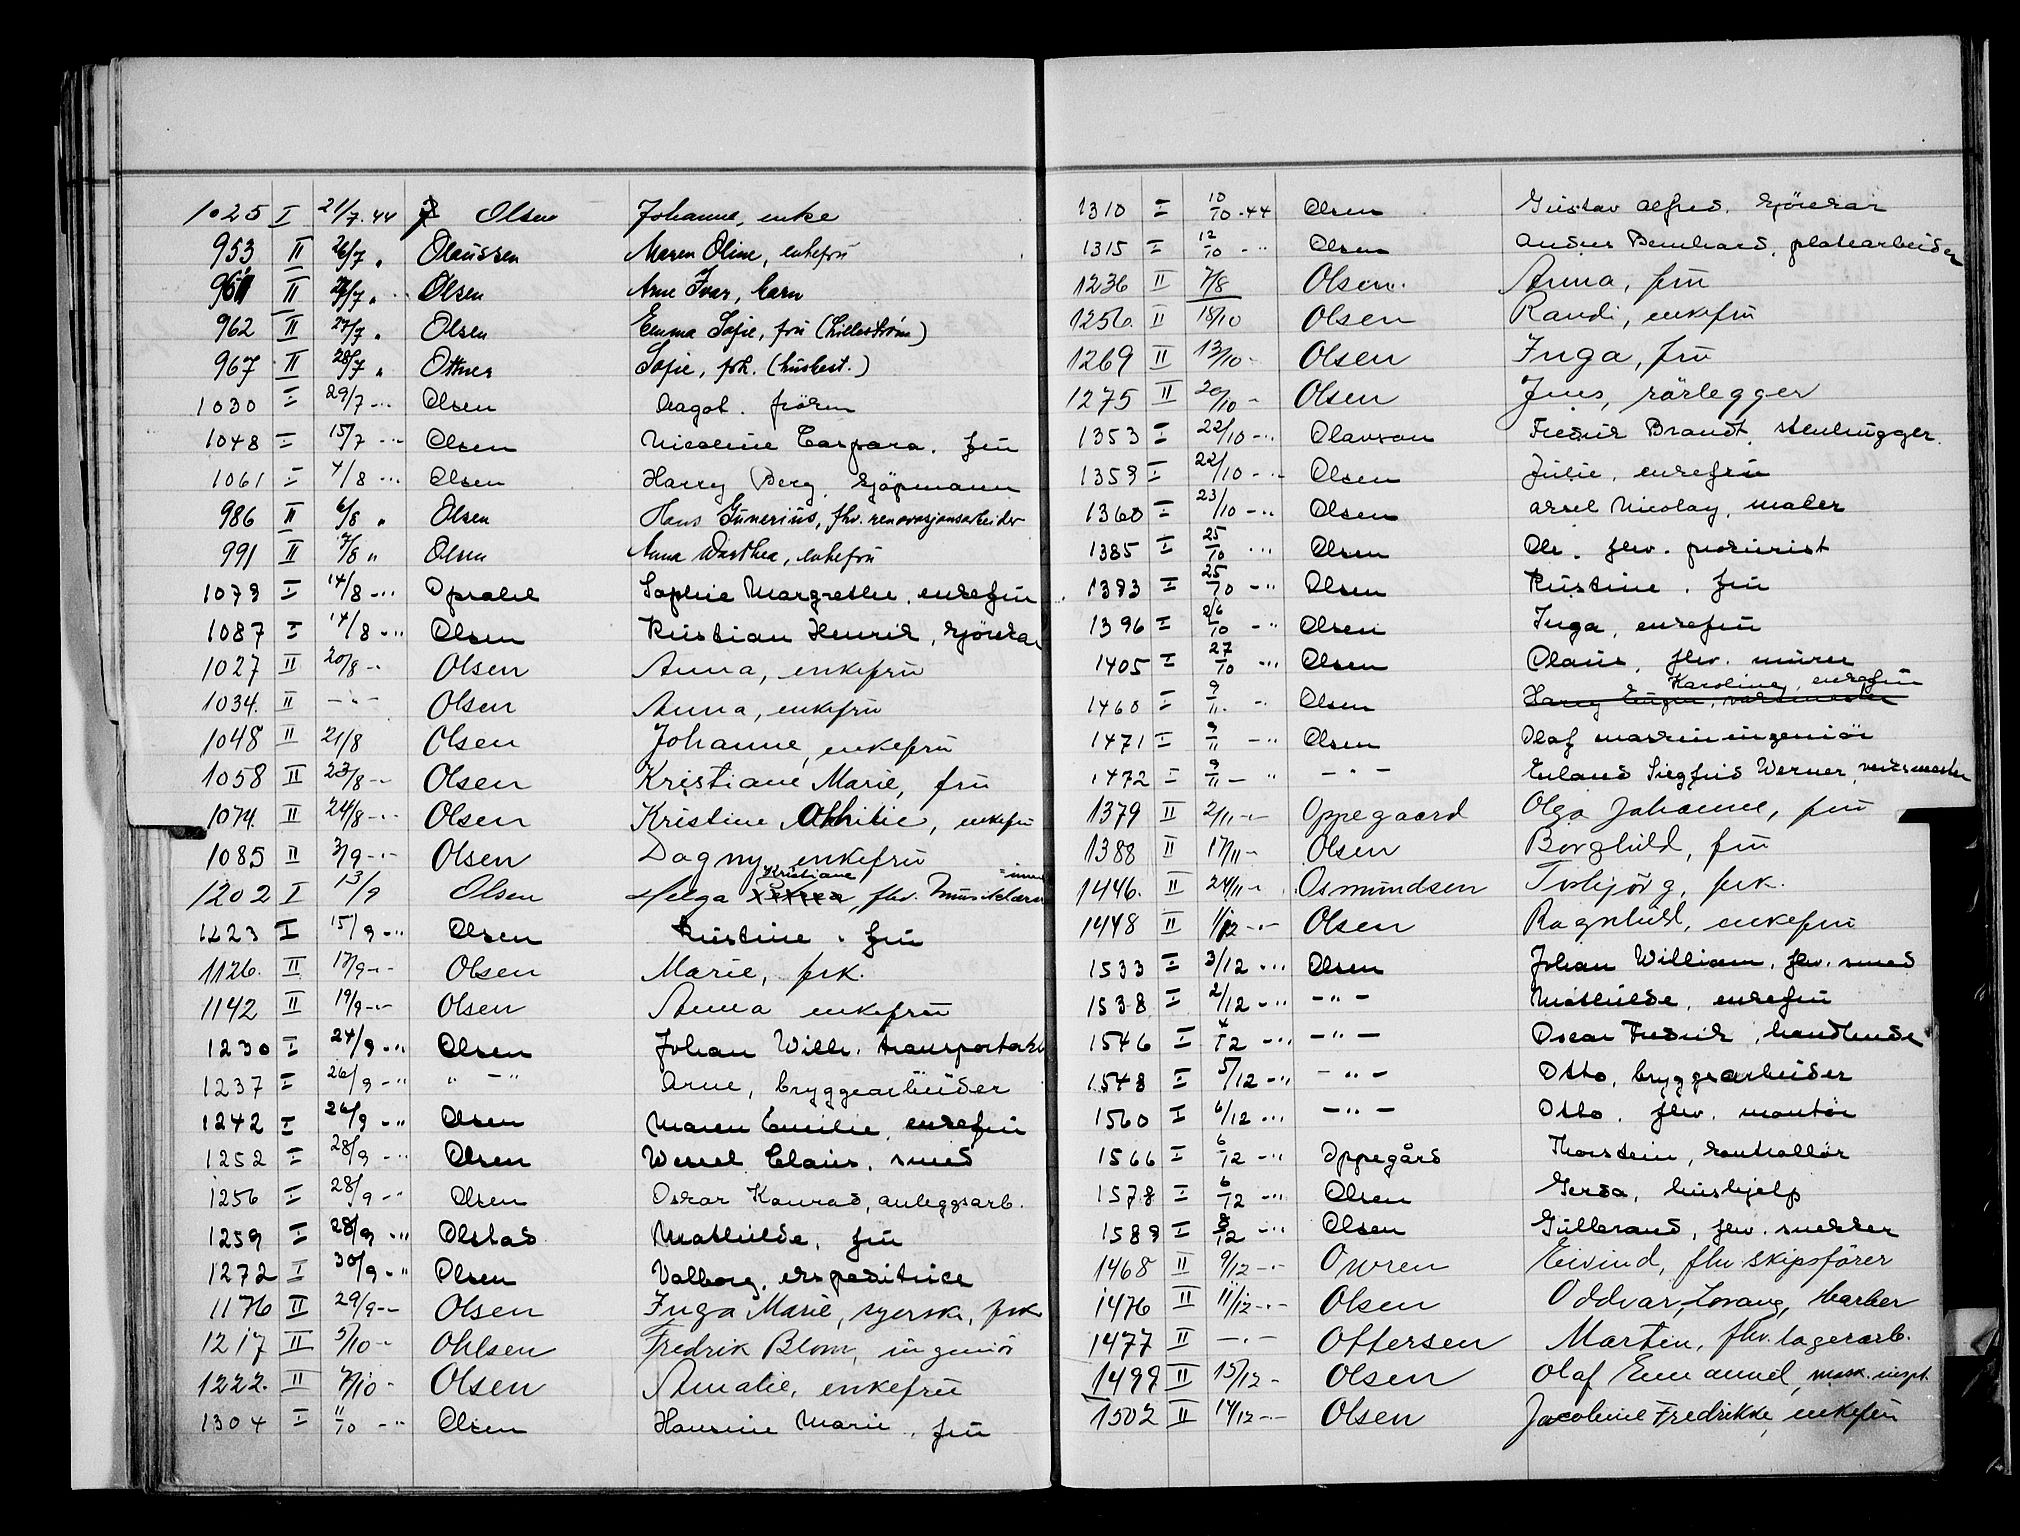 1025 I 21/7.44 Olsen Johanne, enke
953 II 26/7 " Olaussen Maren Oline, enkefru
961 II 27/7 " Olsen Arne Ivar, barn
962 II 27/7 " Olsen Emma Sofie, fru (Lillestrøm)
967 II 28/7 " Ottnes Sofie, frk. (husbest.)
1030 I 29/7 -"- Olsen Dagob. frøken
1048 I 15/7 -"- Olsen Nicoline Caspara. fru
1061 I 4/8 -"- Olsen Harry Berg. kjøpmann
986 II 6/8 " Olsen Hans Gunerius, fhv. renovasjonsarbeider
991 II 7/8 " Olsen Anna Dorthea, enkefru
1079 I 14/8 -"- Opsahl Sophie Margrethe, enkefru
1087 I 14/8 -"- Olsen Kristian Henrik, kjørekar
1027 II 20/8 -"- Olsen Anna, enkefru
1034. II -"- Olsen Anna, enkefru
1048 II 21/8 Olsen Johanne, enkefru
1058 II 23/8 -"- Olsen Kristiane Marie, fru
1074. II 24/8 -"- Olsen Kristine Othilie, enkefru
1085 II 3/9 -"- Olsen Dagny, enkefru
1202 I 13/9 Olsen Helga Kristiane, fhv. Musiklærer=inne
1223 I 15/9 -"- Olsen Kristine. fru
1126. II 17/9 -"- Olsen Marie, frk.
1142 II 19/9 -"- Olsen Anna enkefru
1230 I 24/9 -"- Olsen Johan Wilh. transportarb
1237 I 26/9 -"- " -"- Arne, bryggearbeider
1242 I 26/9 -"- Olsen Maren Emilie, enkefru
1252 I 28/9 -"- Olsen Wessel Claus. smed
1256 I 28/9 -"- Olsen Oskar Konrad, anleggsarb.
1259 I 28/9 -"- Olstad Mathilde, fru
1272 I 30/9 -"- Olsen Valborg, ekspeditrice
1176 II 29/9 -"- Olsen Inga Marie, syerske, frk
1217 II 5/10 -"- Ohlsen Fredrik Blom, ingeniør
1222. II 7/10 - Olsen Amalie, enkefru
1304 I 11/10 -"- Olsen Hansine Marie, fru
1310 I 10/10 -44 Olsen Gustav Alfred. kjørekar
1315 I 12/10 -"- Olsen Anders Bernhard, platearbeider
1236 II 7/8 Olsen. Anna, fru
1256. II 18/10 Olsen Randi, enkefru
1269 II 13/10 - Olsen Inga, fru
1275 II 20/10 - Olsen Jens, rørlegger
1353 I 22/10 -"- Olavson Fredrik Brandt, stenhugger.
1359 I 22/10 -"- Olsen Julie, enkefru
1360 I 23/10 -"- Olsen Aksel Nicolay, maler
1385 I 25/10 -"- Olsen Ole. fhv. prokurist
1393 I 25/10 -"- Olsen Kristine. fru
1396 I 26/10 -"- Olsen Inga, enkefru
1405 I 27/10 -"- Olsen Olaus, fhv. murer
1460 I 9/11. -"- Olsen Harry Eugen, verksmester Karoline, enkefru
1471 I 9/11 -"- Olsen Olaf maskiningeniør
1472 I 9/11 -"- -"- Erland Siegfrid Werner, verksmester
1379 II 2/11 -"- Oppegaard Olga Johanne, fru
1388 II 17/11 - Olsen Borghild, fru
1446. II 24/11 -"- Osmundsen Torbjørg, frk.
1448 II 1/12 -"- Olsen Ragnhild, enkefru
1533 I 3/12 -"- Olsen Johan William, fhv. smed
1538 I 2/12 -"- -"- Mathilde, enkefru
1546 I 4/12 -"- -"- Oscar Fredrik, handlende
1548 I 5/12 -"- -"- Otto, bryggearbeider
1560 I 6/12 -"- -"- Otto. fhv. montør
1566 I 6/12 -"- Oppegård Thorstein, kontrollør
1578 I 6/12 -"- Olsen Gerda, hushjelp
1589 I 8/12 -"- Olsen Gulbrand, fhv. snekker
1468 II 9/12 -"- Owren Eivind, fhv skipsfører
1476 II 11/12 -"- Olsen Oddvar Lorang, Barber
1477 II -"- Ottersen Marten, fhv. lagerarb.
1499 II 15/12 - Olsen Olaf Emanuel, mask.inspt.
1502 II 14/12 -"- Olsen Jacobine Fredrikke, enkefru